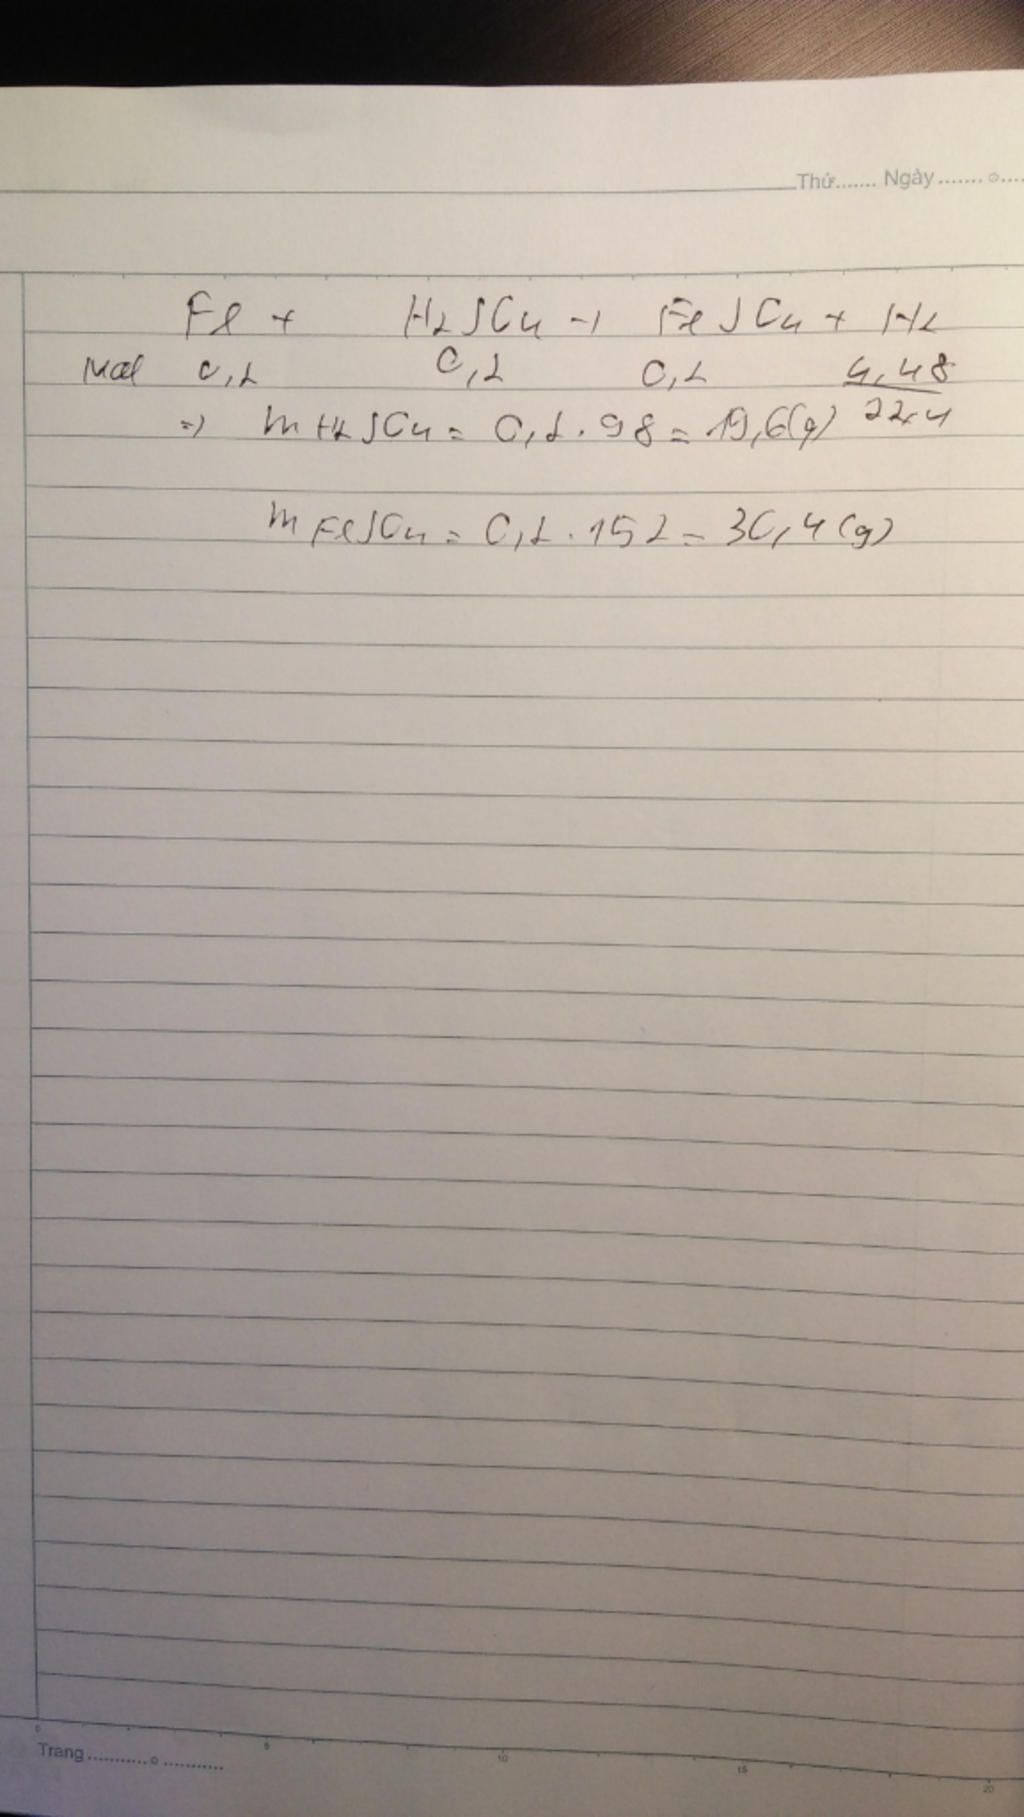 Thứ....... Ngày.......
Fe + H2SO4 → FeSO4 + H2
Mol 0,2 0,2 0,2 4,48/22,4
=> mH2SO4 = 0,2 . 98 = 19,6(g)
mFeSO4 = 0,2 . 152 = 30,4(g)
0 5 10 15 20
Trang....................